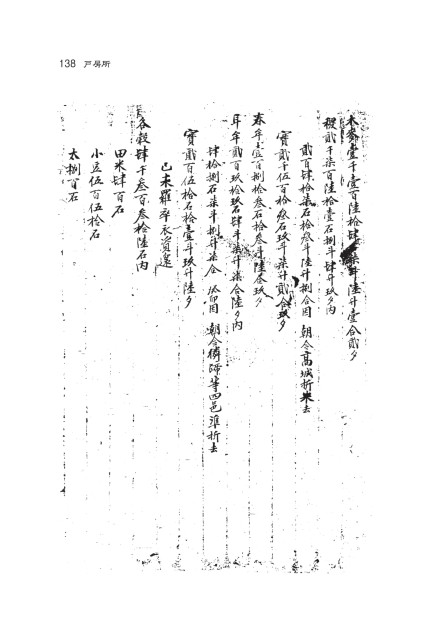 138 戶房所
木麥壹千壹百陸拾肆石柒斗陸升壹合貳夕
稷貳千柒百陸拾壹石捌斗肆升玖夕內
貳百肆拾柒石拾叁斗陸升捌合因 朝令高城折米去
實貳千伍百拾叁石玖斗柒升貳合玖夕
春牟壹百捌拾叁石拾叁斗陸合玖夕
耳牟貳百玖拾玖石肆斗柒升柒合陸夕內
肆拾捌石柒斗捌升柒合 因 朝令 等四邑準折去
實貳百伍拾石拾壹斗玖升陸夕
己未羅牟衣資還
各穀肆千叁百叁拾陸石內
田米肆百石
小豆伍百伍拾石
太捌百石